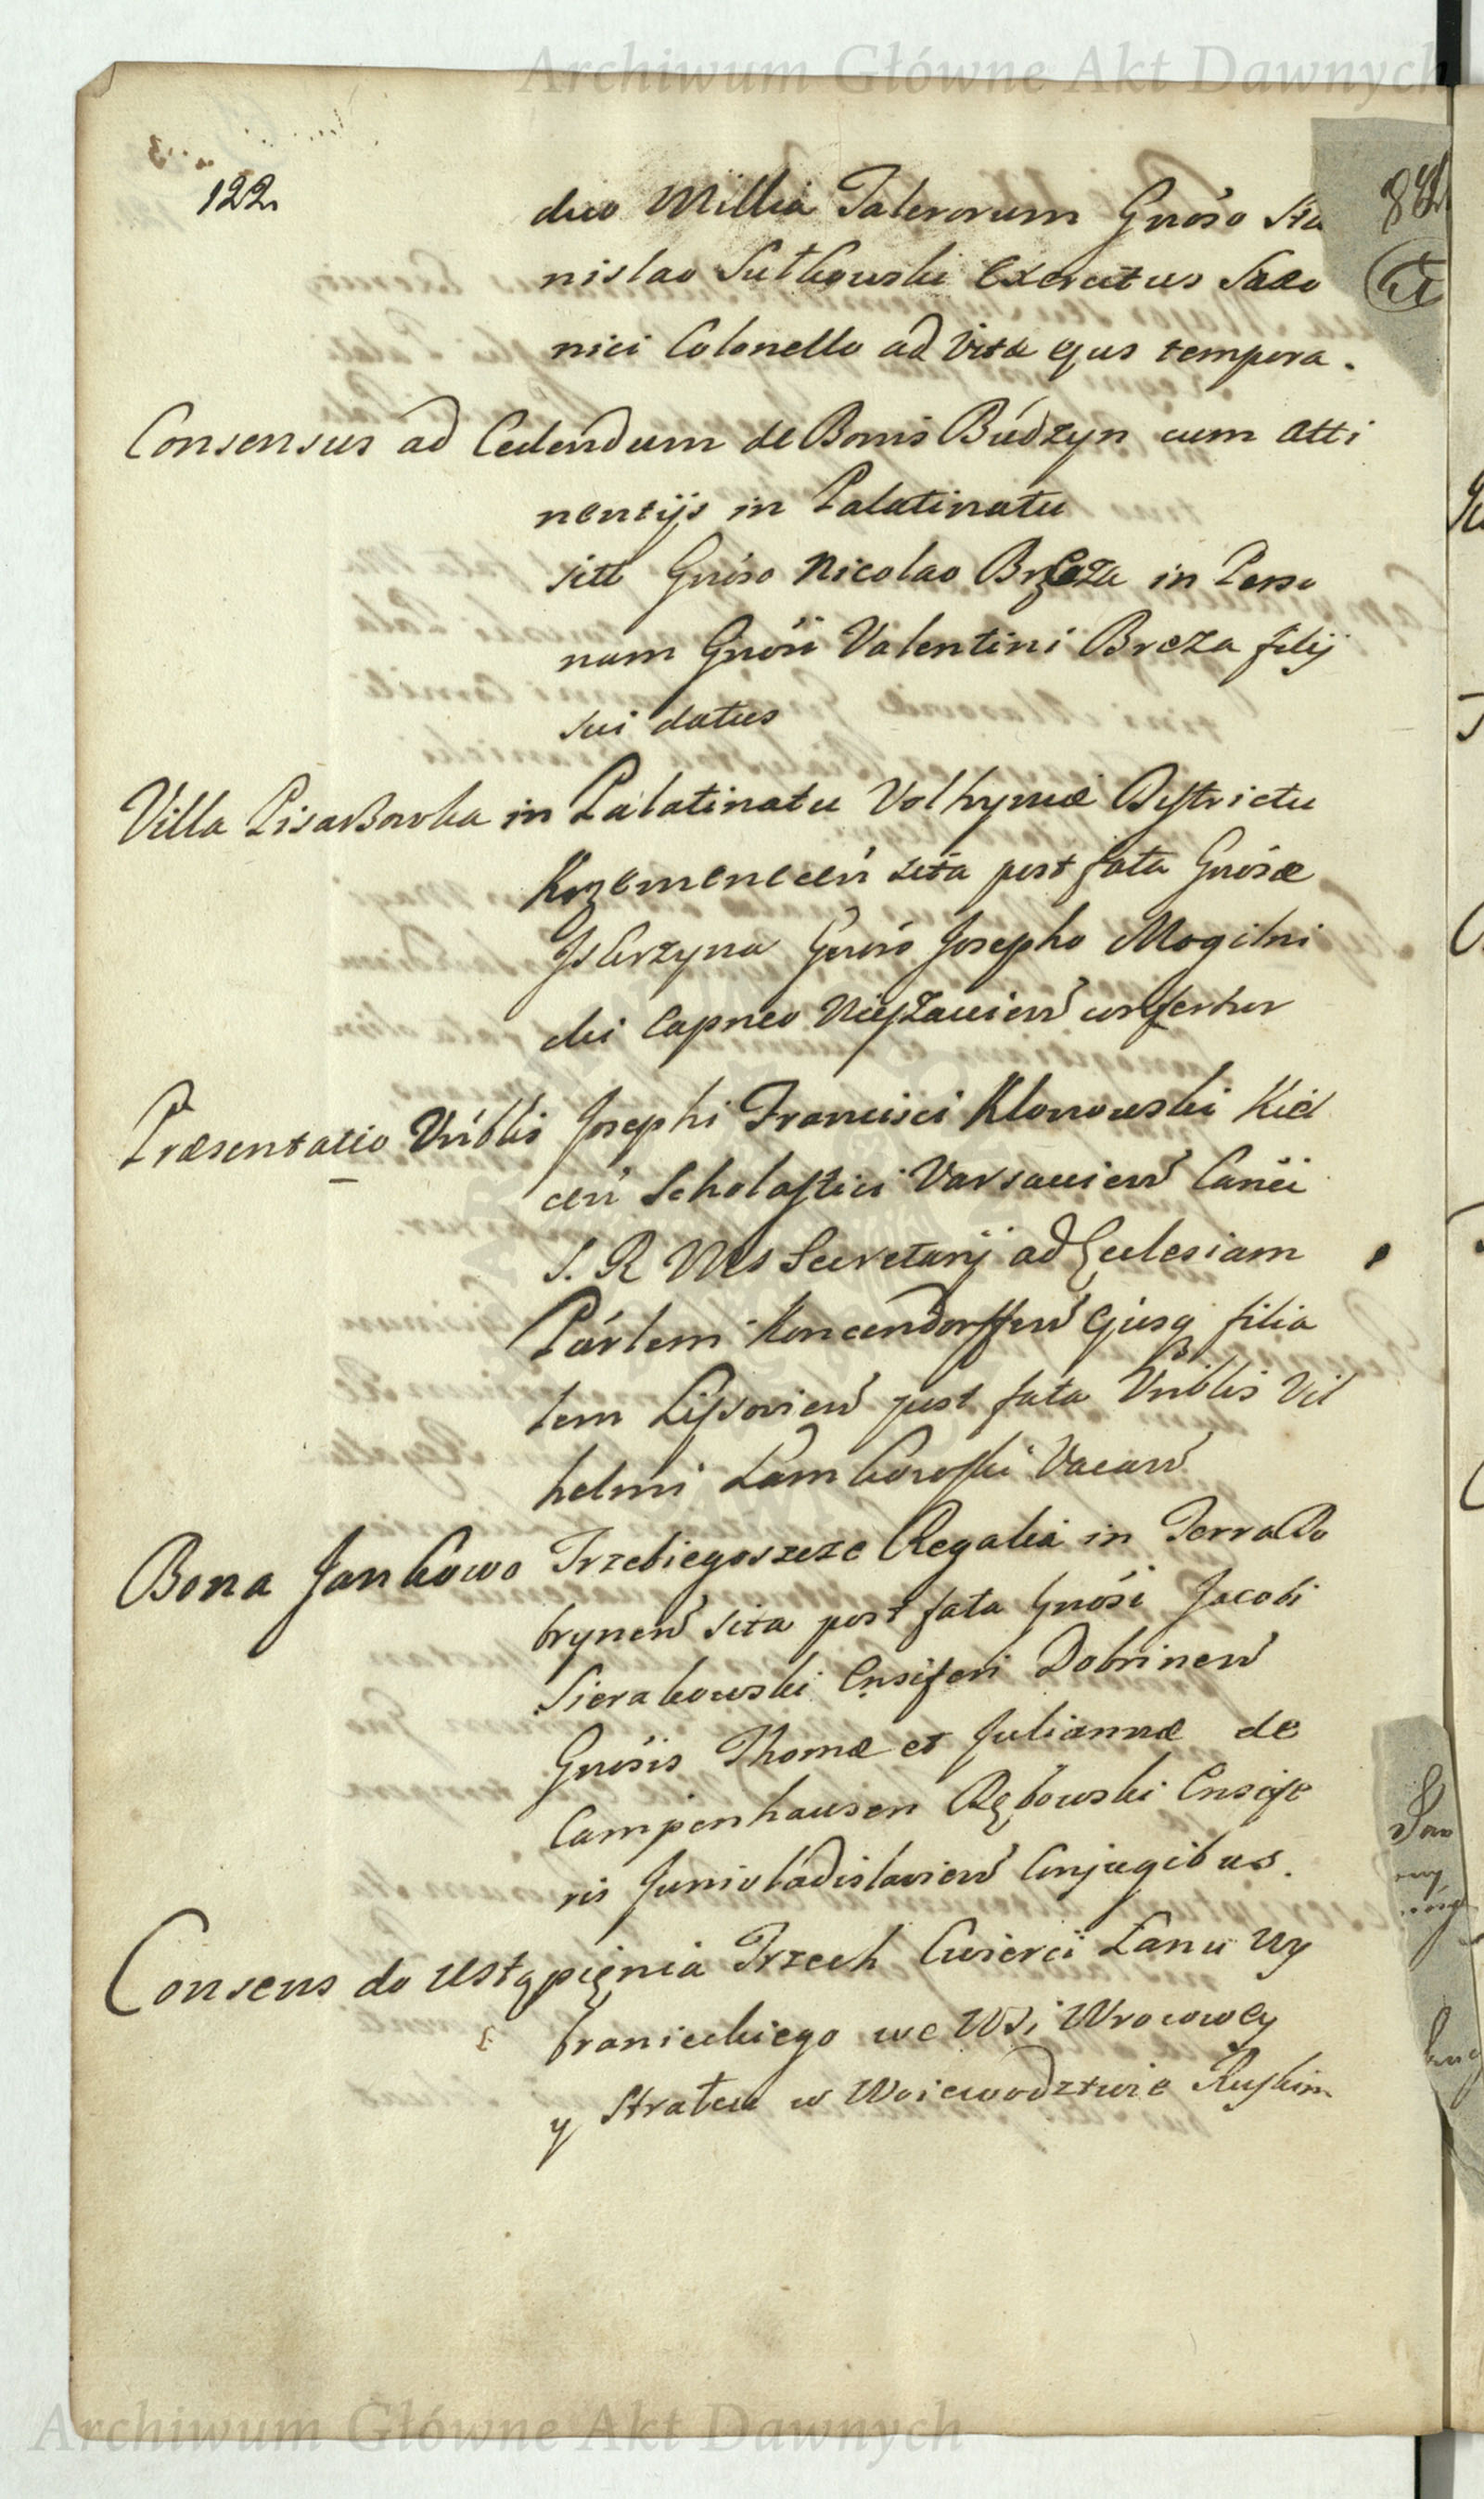 Archiwum Główne Akt Dawnych
122
duo Millia Talerorum Gnoso Sta
nislao Sutkowski Exercitus Saxo
nici Colonello ad Vitæ ejus tempora.
Consensus ad Cedendum de Bonis Budzyn cum atti
nentijs in Palatinatu
sitt Gnoso Nicolao Brzeza in Perso
nam Gnosi Valentini Breza filij
sui datus
Villa Pisarowka in Palatinatu Volhyniæ Districtu
Krzemenecen sita post fata Gnosæ
Iskrzyna Gnoso Josepho Mogilni
cki Capneo confertur
Præsentatio Vnblis Josephi Francisci Klonowski Kiel
cen Scholastici Varsavien Canci
S. R. Mtis Secretarij ad Ecclesiam
Parlem Koncendorffen Ejusq filia
lem Lissovien post fata Vnblis Vil
helmi Lamkowski Vacan
Bona Jankowo Trzebiegoszcze Regalia in Terra Do
brynen sita post fata Gnosi Jacobi
Sierakowski Ensiferi Dobrinen
Gnosis Thomæ et Juliannæ de
Campenhausen Rębowski Ensife
ris Juniwladislavien Conjugibus.
Consens do Ustąpięnia Trzech Cwierci Łanu Wy
branieckiego we Wsi Wrocowey
y Stratcu w Woiewodztwie Ruskim
Archiwum Główne Akt Dawnych